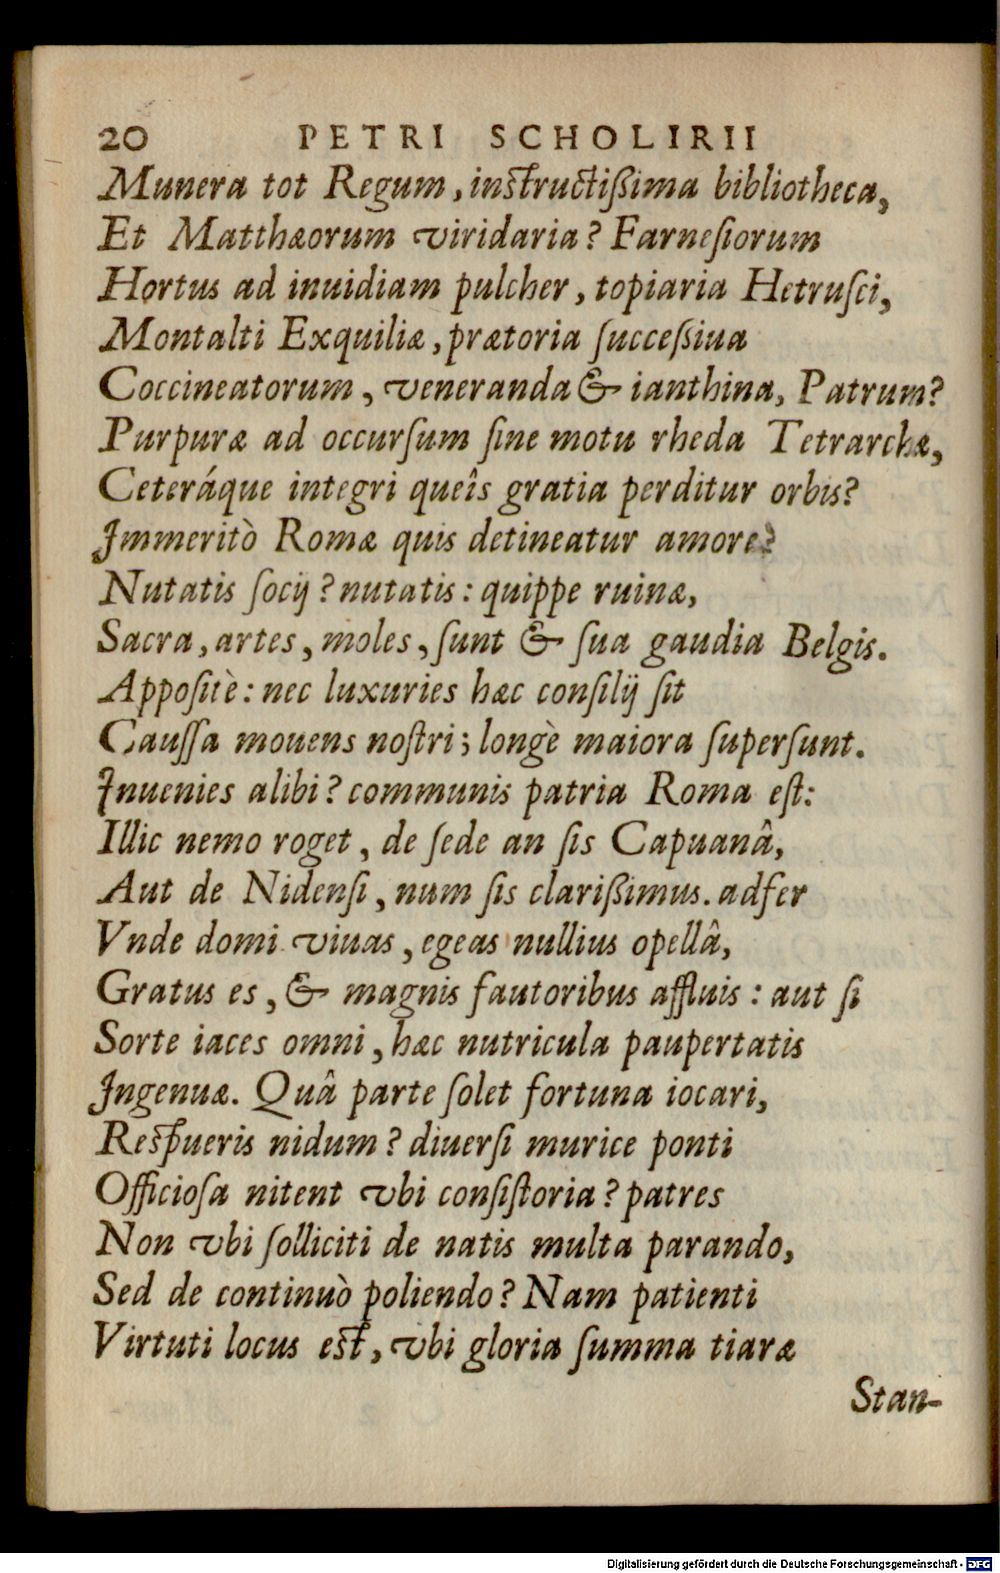 20 PETRI SCHOLIRII
Munera tot Regum, inſtructiſſima bibliotheca,
Et Matthæorum viridaria? Farneſiorum
Hortus ad inuidiam pulcher, topiaria Hetruſci,
Montalti Exquiliæ, prætoria ſucceſſiua
Coccineatorum, veneranda & ianthina, Patrum?
Purpuræ ad occurſum ſine motu rheda Tetrarchæ,
Ceteráque integri queîs gratia perditur orbis?
Immeritò Romæ quis detineatur amore?
Nutatis ſocij? nutatis: quippe ruinæ,
Sacra, artes, moles, ſunt & ſua gaudia Belgis.
Appoſitè: nec luxuries hæc conſilij ſit
Cauſſa mouens noſtri; longè maiora ſuperſunt.
Inuenies alibi? communis patria Roma eſt:
Illic nemo roget, de ſede an ſis Capuanâ,
Aut de Nidenſi, num ſis clariſſimus. adfer
Vnde domi viuas, egeas nullius opellâ,
Gratus es, & magnis fautoribus affluis: aut ſi
Sorte iaces omni, hæc nutricula paupertatis
Ingenuæ. Quâ parte ſolet fortuna iocari,
Reſpueris nidum? diuerſi murice ponti
Officioſa nitent vbi conſiſtoria? patres
Non vbi ſolliciti de natis multa parando,
Sed de continuò poliendo? Nam patienti
Virtuti locus eſt, vbi gloria ſumma tiaræ
Stan-
Digitalisierung gefördert durch die Deutsche Forschungsgemeinschaft - DFG